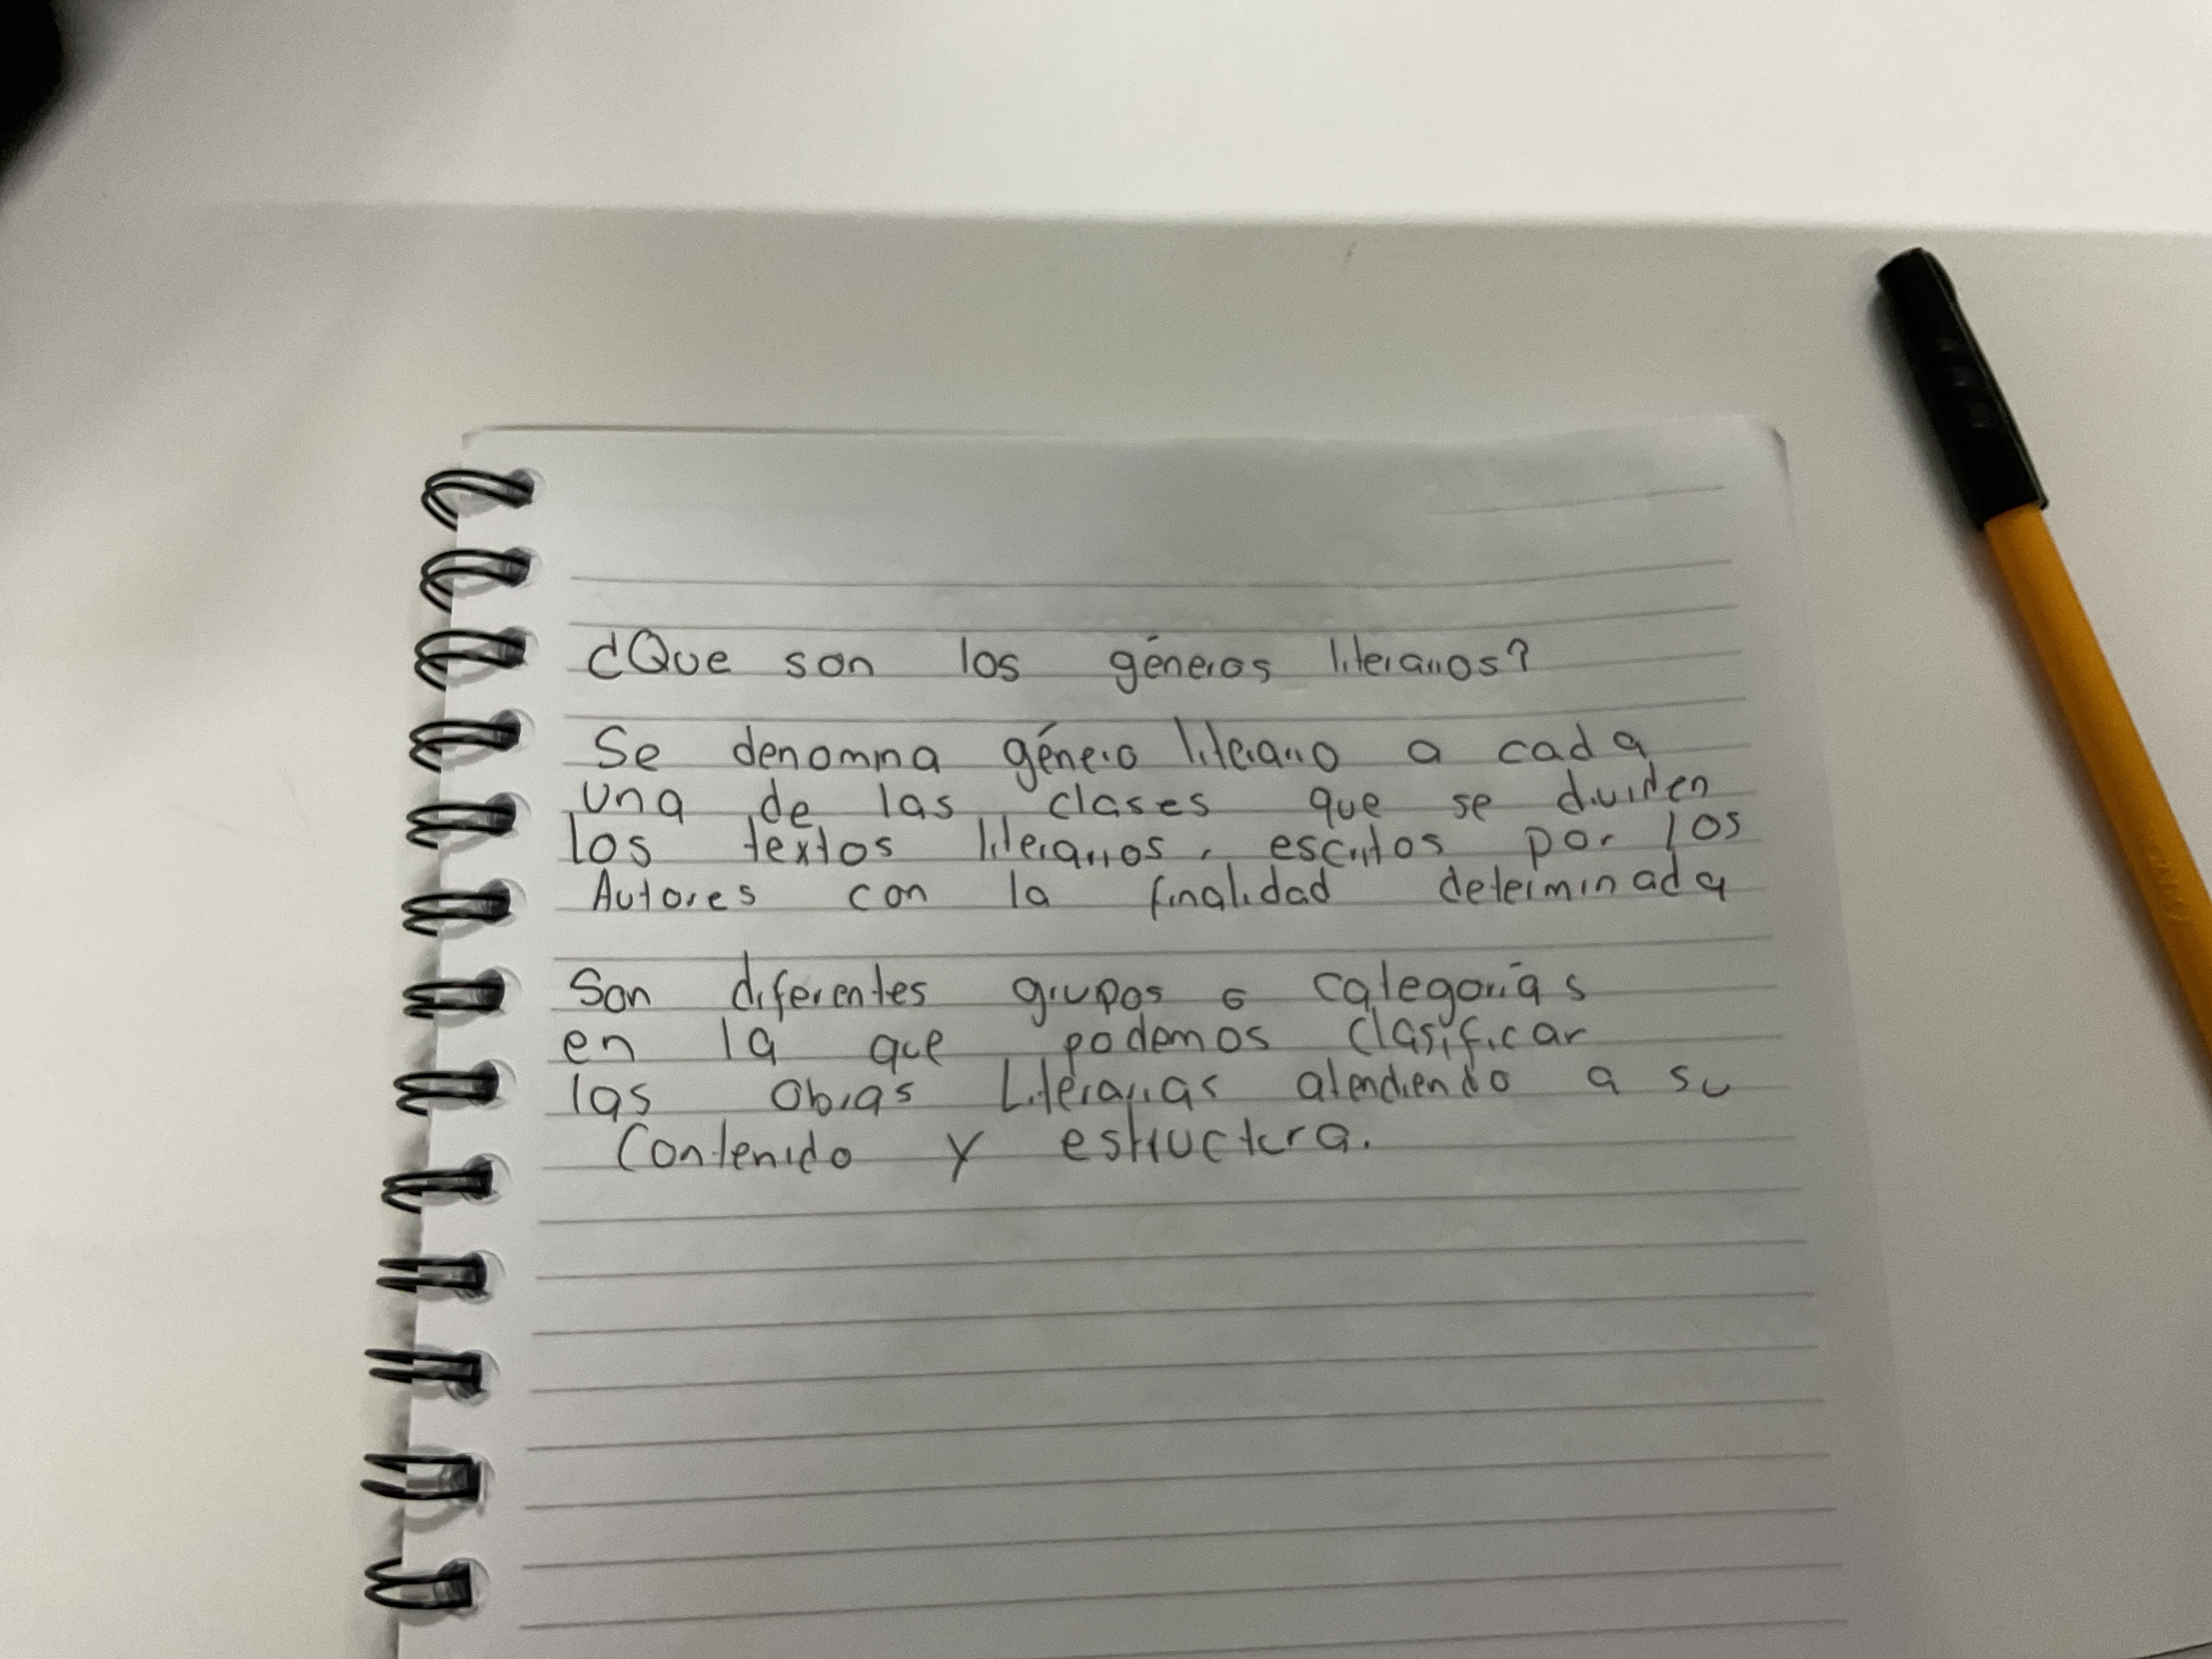 ¿Que son los géneros literarios?
Se denomina género literario a cada
una de las clases que se dividen
los textos literarios, escritos por los
Autores con la finalidad determinada
Son diferentes grupos o categorías
en la que podemos clasificar
las obras Literarias atendiendo a su
Contenido y estructura.